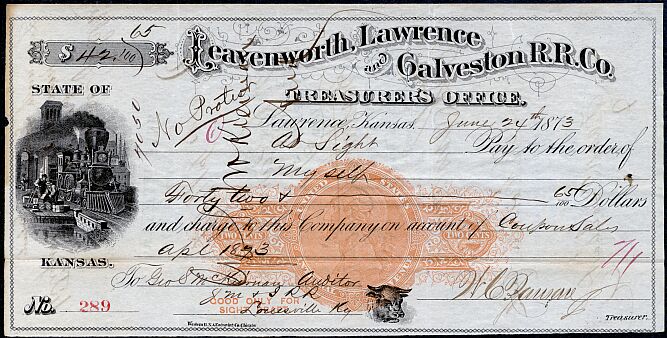 $ 42.65/100
Leavenworth, Lawrence
and Galveston R.R. Co.
STATE OF
TREASURER'S OFFICE.
No Protest
Lawrence, Kansas. June 24th 1873
At Sight Pay to the order of
Myself
Forty two & 65/100 Dollars
and charge to this Company on account of Coupon Sales
Apl 1873
KANSAS.
UNITED STATES
To Geo Auditor
GOOD ONLY FOR
SIGHT
Louisville Ky
No. 289
Treasurer.